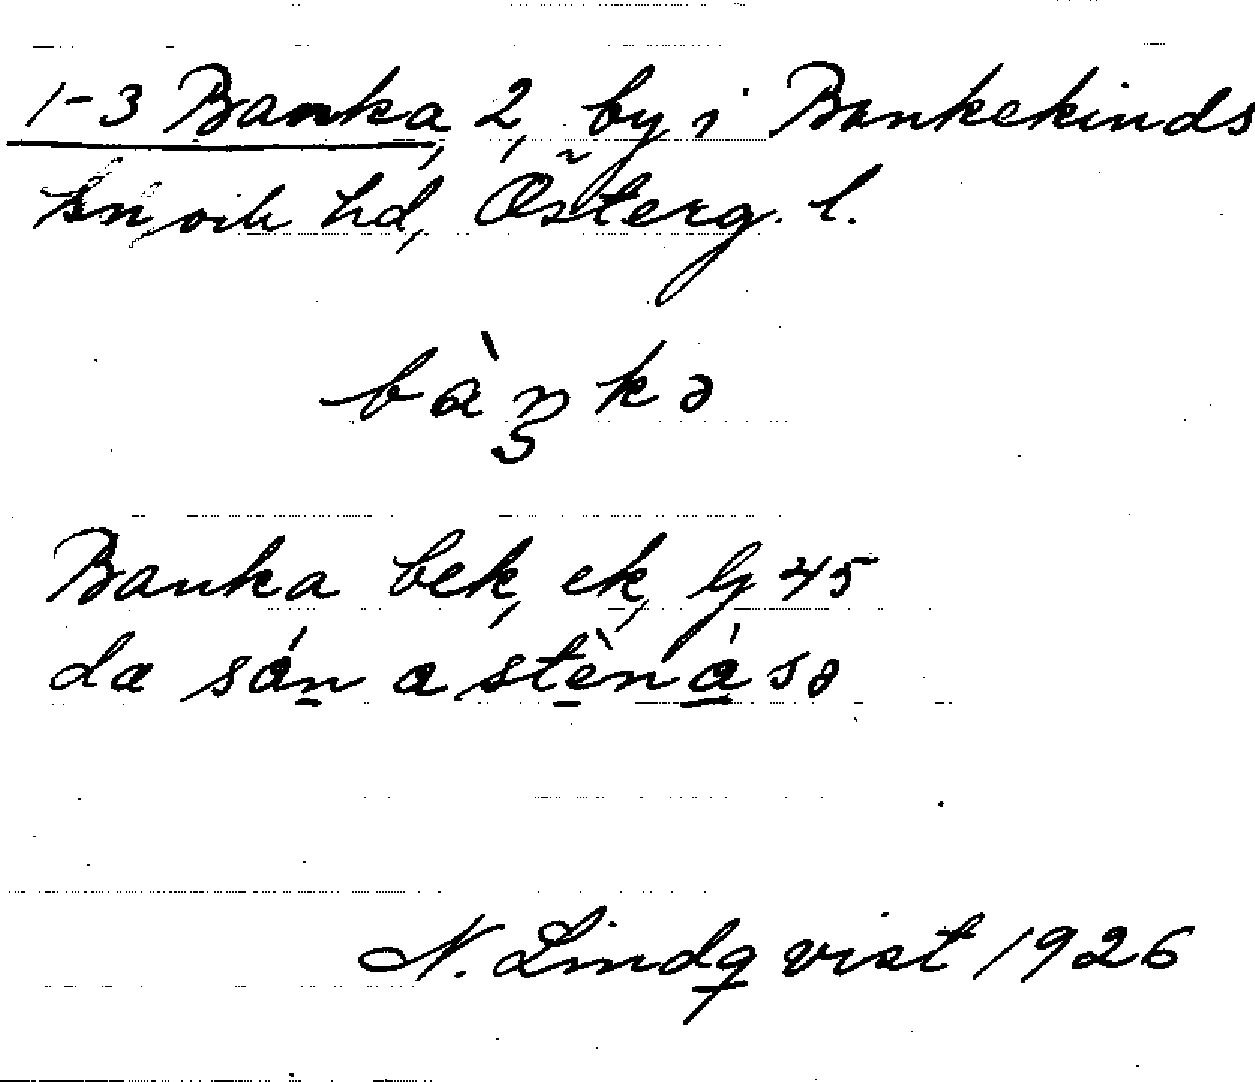 1-3 Banka, 2, by i Bankekinds
sn, och hd, Österg. l.
bàŋkə
Banka bek, ek, lg 45
da sán a stènásə
N. Lindqvist 1926